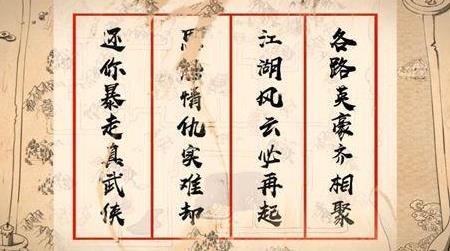 各路英豪齐相聚
江湖风云必再起
恩蚀情仇实难却
还你暴走真武侠